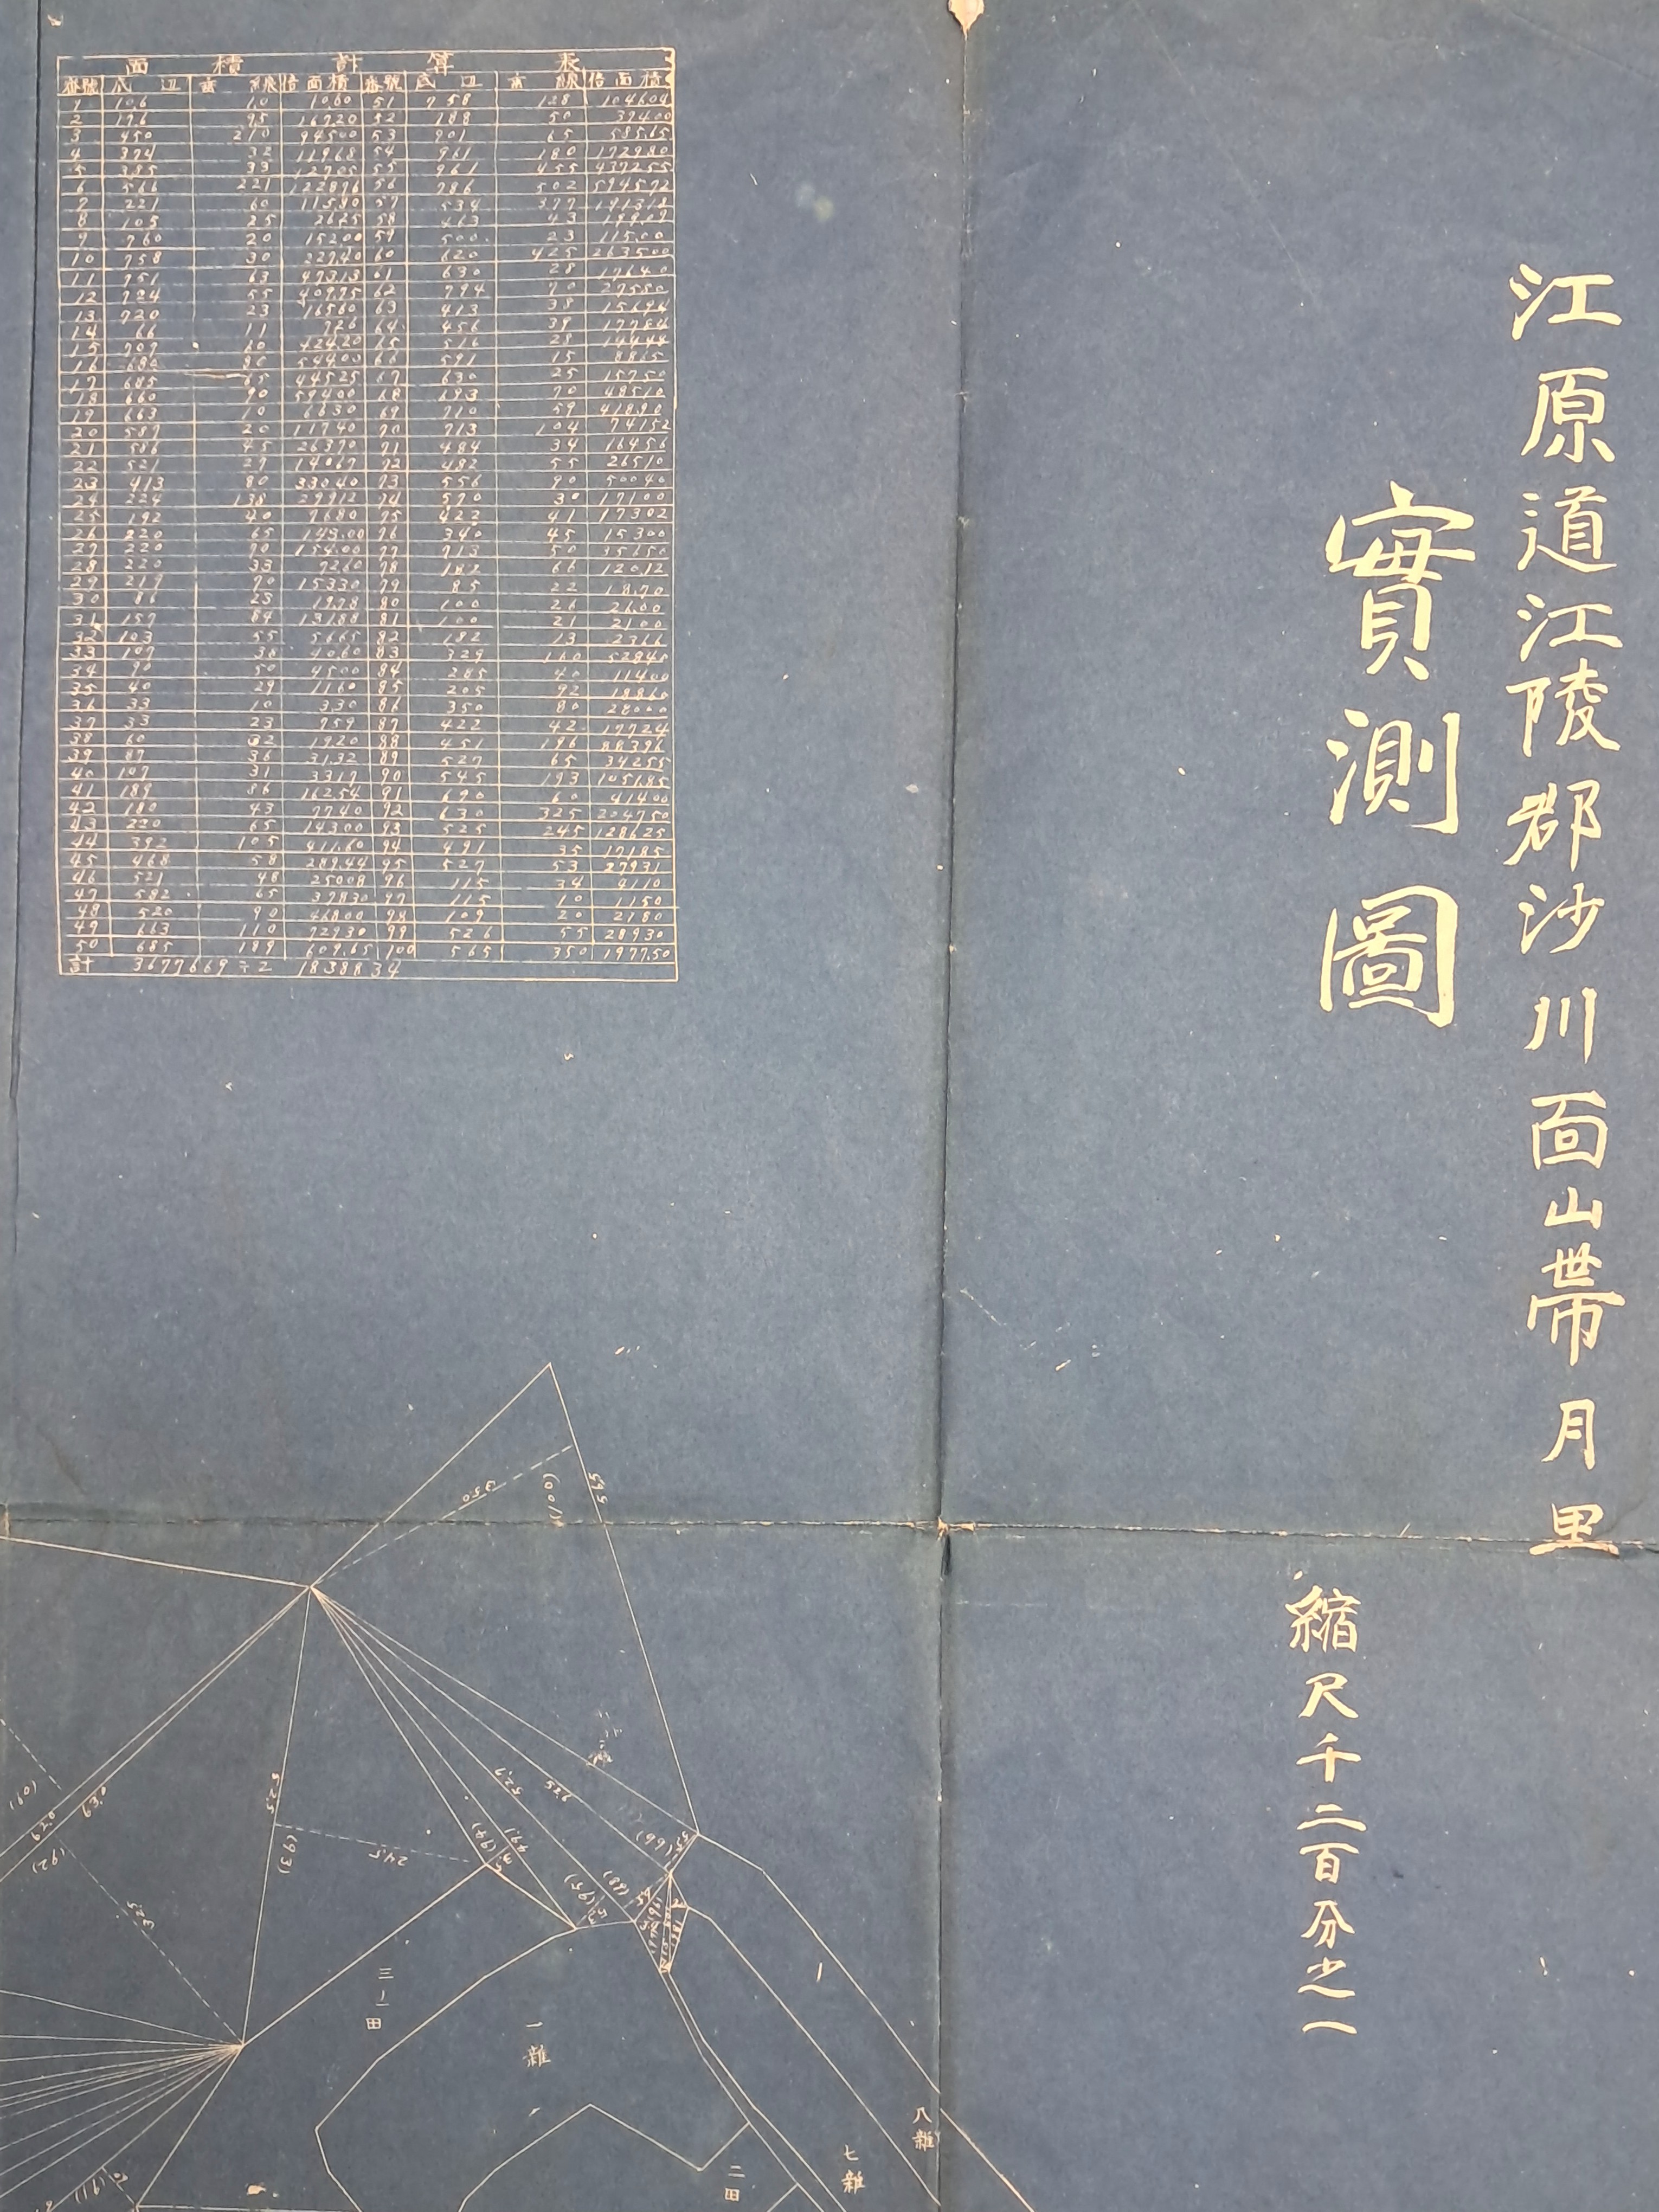 江原道江陵郡沙川面山帯月里
實測圖
縮尺千二百分之一
面積計算表
番號 底辺 垂線 倍面積 番號 底辺 垂線 倍面積
1 106 10 1060 51 758 128
2 176 95 16720 52 188 50 37400
3 450 210 94500 53 901 65 58565
4 374 32 11968 54 961 180 172980
5 385 33 12705 55 961 455 437255
7 221 60 57 534
8 105 25 2625 58 463 43 19909
9 760 20 15200 59 500 23 11500
10 758 30 22740 60 620 425 263500
11 751 63 47313 61 630 28 17640
13 720 23 16560 63 413 38 15694
14 66 11 726 64 456 39 17784
15 707 60 42420 65 516 28 14448
16 680 80 54400 66 591 15 8865
17 685 65 44525 67 630 25 15750
18 660 90 59400 68 693 70 48510
19 663 10 6630 69 710 59 41890
20 587 20 11740 70 713 104 74152
21 586 45 26370 71 484 34 16456
22 521 27 14067 72 482 55 26510
23 413 80 33040 73 556 90 50040
24 224 138 74 570 30 17100
25 192 40 7680 75 422 41 17302
26 220 65 14300 76 340 45 15300
27 220 70 15400 77 713 50 35650
28 220 33 7260 78 182 66 12012
29 219 70 15330 79 85 22 1870
30 86 23 1978 80 100 26 2600
31 157 84 13188 81 100 21 2100
32 103 55 5665 82 182 13 2366
33 107 38 4060 83 329 160 52840
34 90 50 4500 84 285 40 11400
35 40 29 1160 85 205 92 18860
36 33 10 330 86 350 80 28000
37 33 23 759 87 422 42 17724
38 60 32 1920 88 451 196 88396
39 87 36 3132 89 527 65 34255
40 107 31 3317 90 545 193 105185
41 189 86 16254 91 690 60 41400
42 180 43 7740 92 630 325 204750
43 220 65 14300 93 525 245 128625
44 392 105 41160 94 491 35 17185
45 468 58 28944 95 527 53 27931
46 521 48 25008 96 115 34 4110
47 582 65 37830 97 115 10 1150
48 520 90 46800 98 109 20 2180
49 663 110 72930 99 526 55 28930
50 685 189 60965 100 565 350 197750
計 3677669÷2 1838834
350
(100)
565
630
620
(92)
325
525
(93)
245
(94)
491
527
(95)
三一田
一雜
二田
七雜
八雜